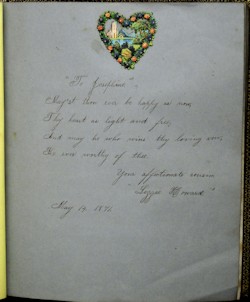 "To Josephine".
May'st thou ever be happy as now,
Thy heart as light and free,
And may he who wins thy loving vow,
Be ever worthy of thee.
Your affectionate cousin
"Lizzie
May 14. 18